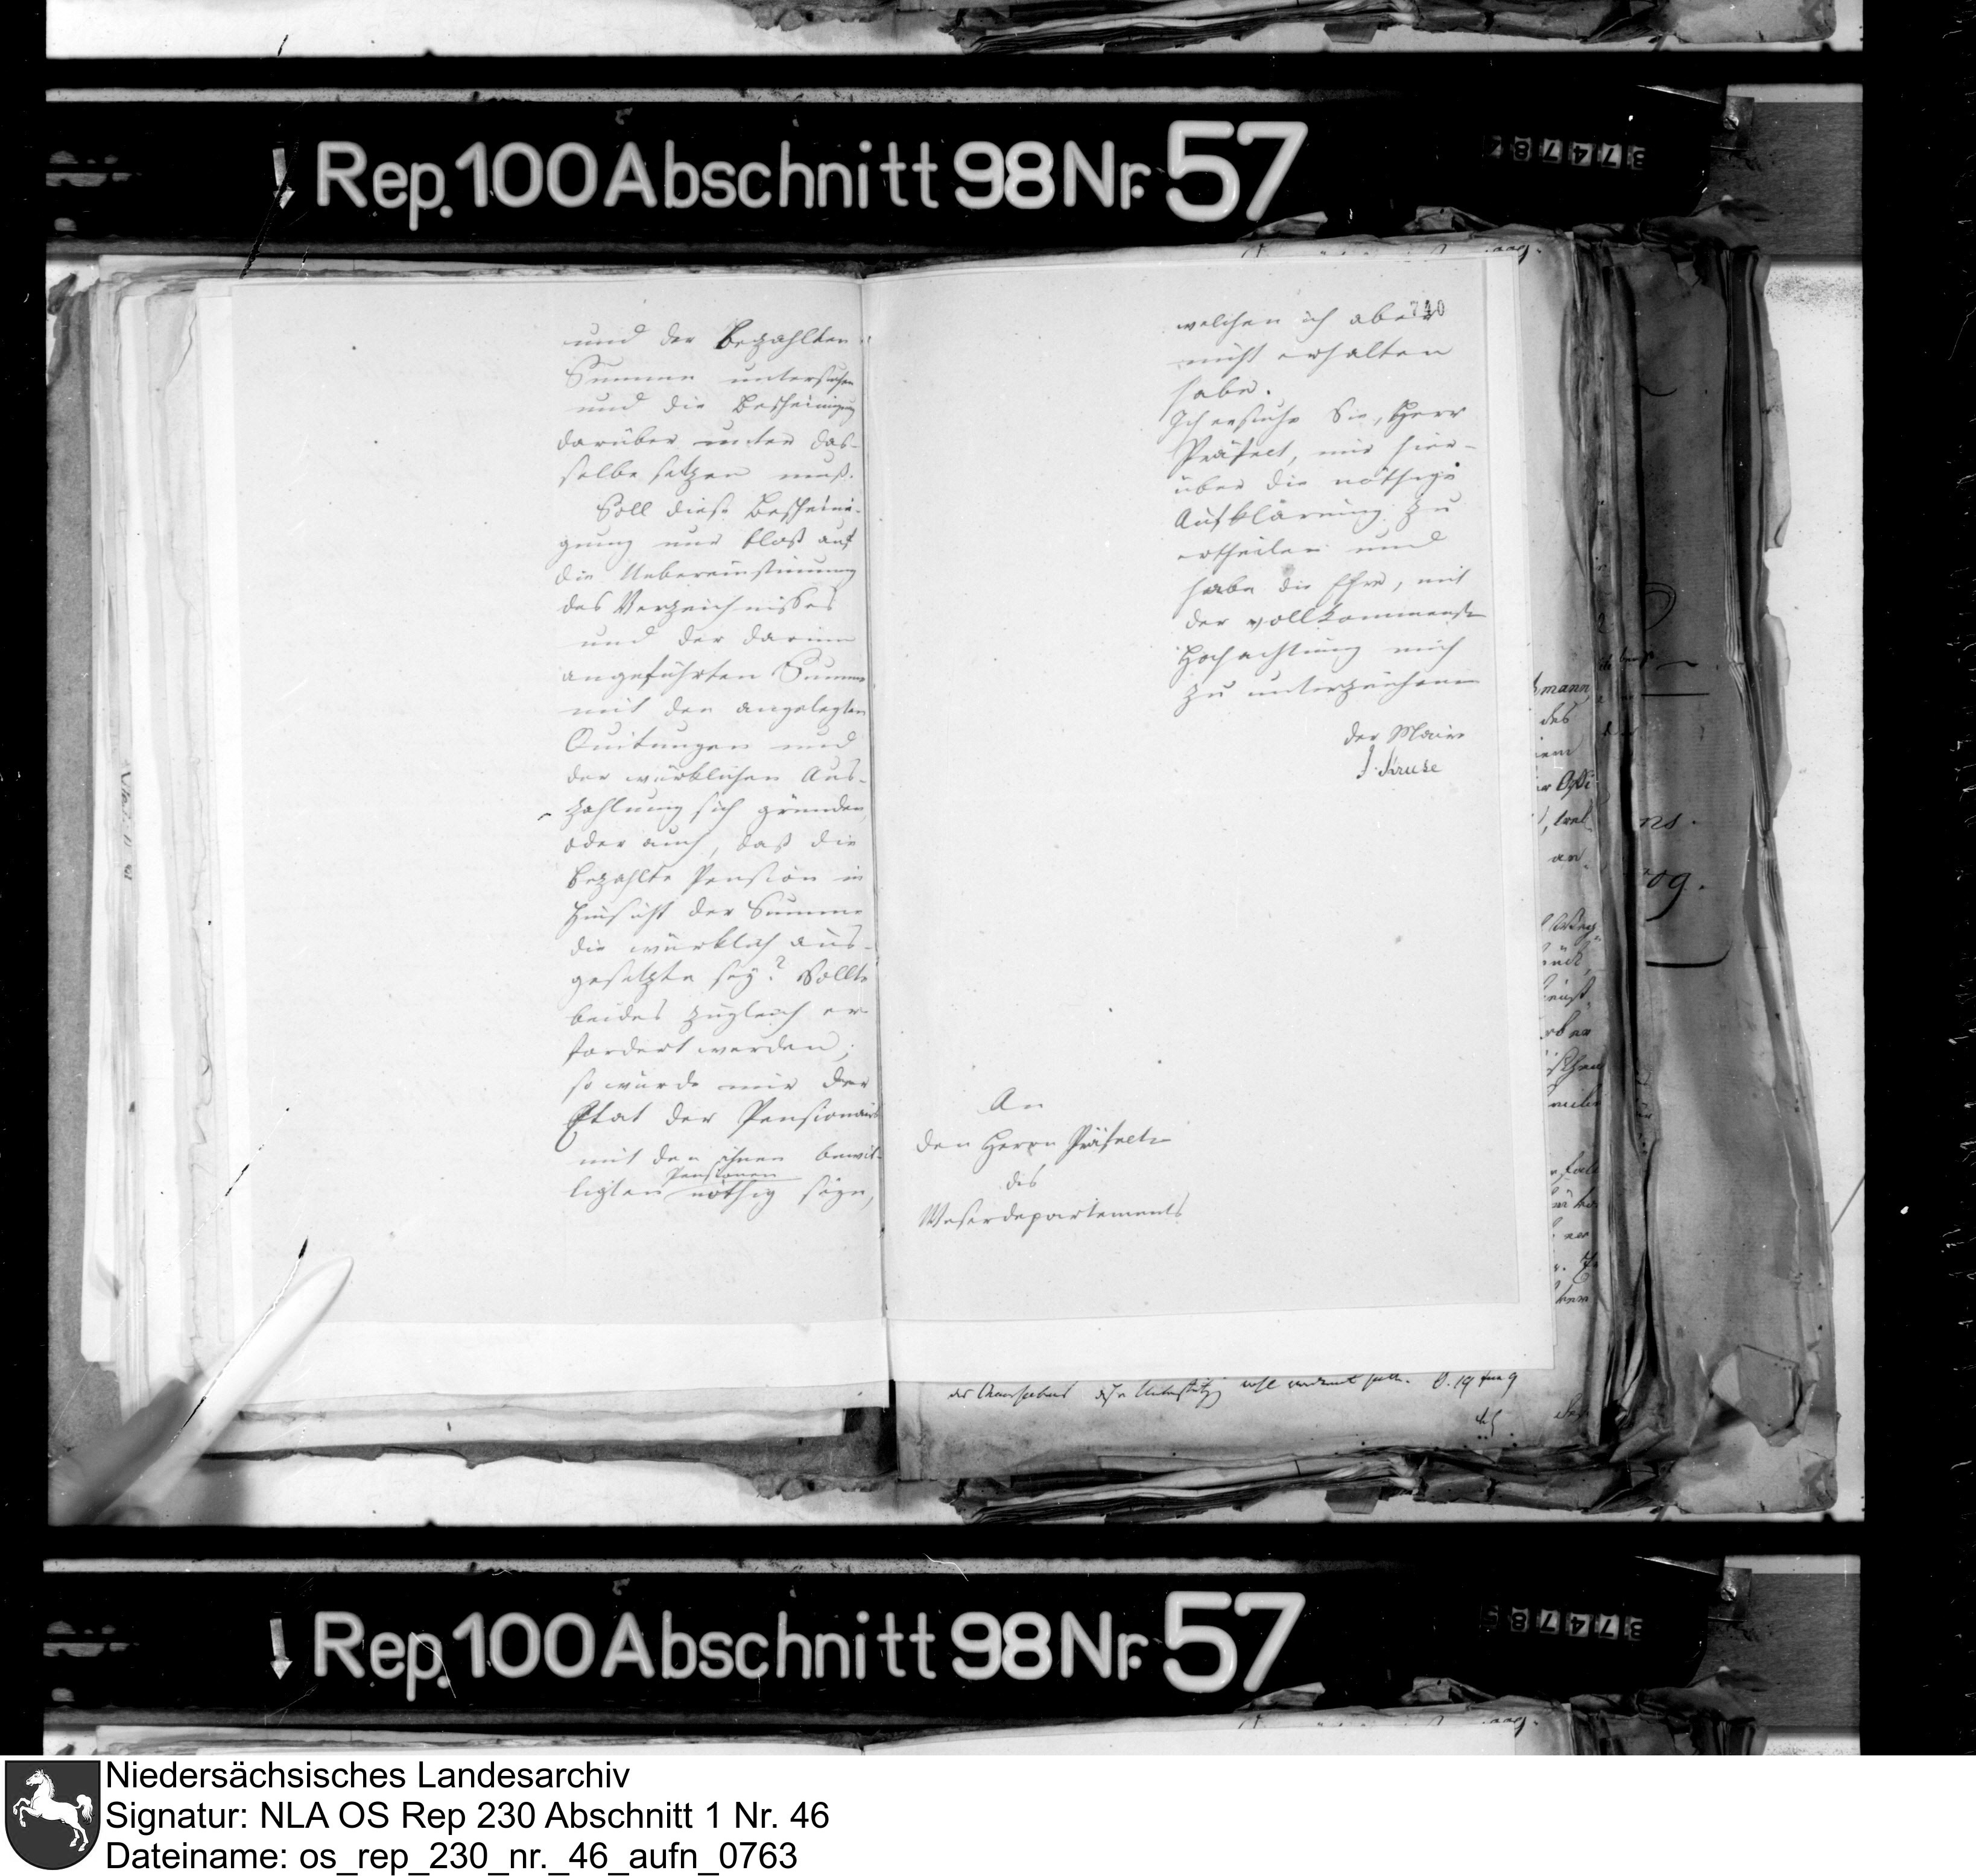 Rep. 100 Abschnitt 98 Nr. 57
und der bezahlten
Summen untersuchen
und die Bescheinigung
darüber unter das-
selbe setzen muß.
Soll diese Bescheini-
gung nur bloß auf
die Uebereinstimmung
des Verzeichnisses
und der darinn
angeführten Summe
mit den angelegten
Quitungen und
der würklichen Aus-
zahlung sich gründen,
oder auch, daß die
bezahlte Pension in
Hinsicht der Summe
die würklich aus-
gesetzte sey? Sollte
beides zugleich er
fordert werden;
so würde mir der
Etat der Pensionairs
mit den ihnen bewil-
ligten Pensionen nöthig seyn,
740
welchen ich aber
nicht erhalten
habe.
Ich ersuche Sie, Herr
Präfect, mir hier-
über die nöthige
Aufklärung zu
ertheilen und
habe die Ehre, mit
der vollkommensten
Hochachtung mich
zu unterzeichnen
Der Maire
J. Kruse
An
den Herrn Präfecten
des
Weserdepartements
Rep. 100 Abschnitt 98 Nr. 57
Niedersächsisches Landesarchiv
Signatur: NLA OS Rep 230 Abschnitt 1 Nr. 46
Dateiname: os_rep_230_nr._46_aufn_0763